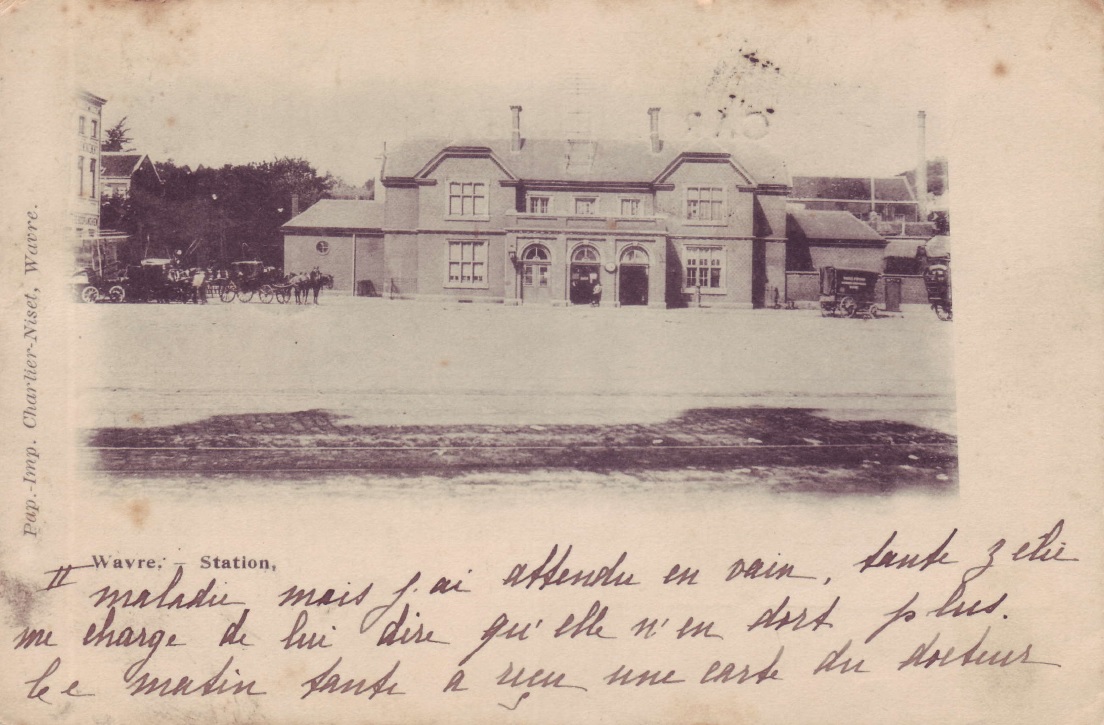 Pap.-Imp. Charlier-Niset, Wavre.
Wavre. – Station,
II maladie mais j'ai attendu en vain, tante zélie
me charge de lui dire qu'elle n'en dort plus.
le matin tante a reçu une carte du docteur